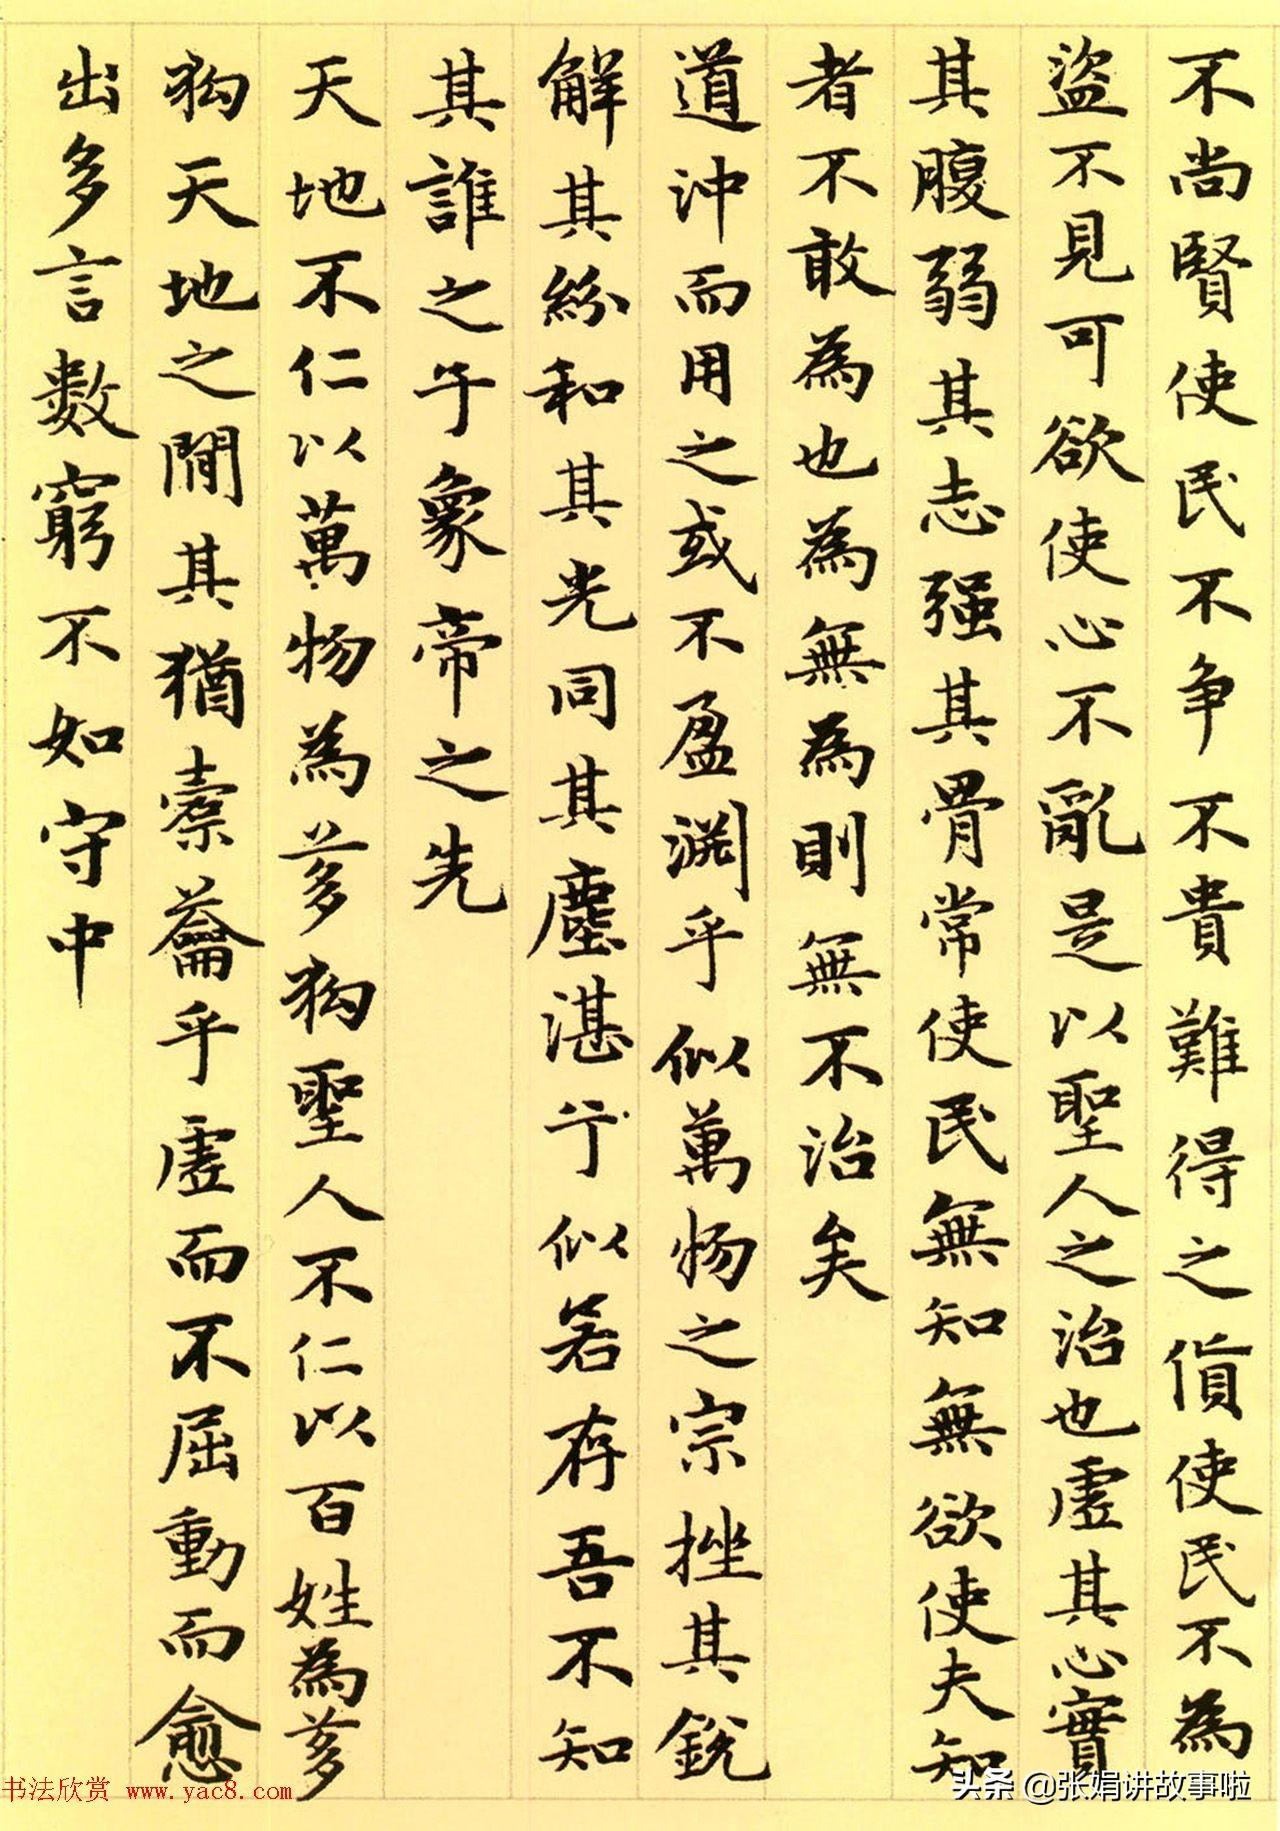 不尚賢使民不争不貴難得之貨使民不為
盜不見可欲使心不亂是以聖人之治也虛其心實
其腹弱其志强其骨常使民無知無欲使夫知
者不敢為也為無為則無不治矣
道沖而用之或不盈渊乎似萬物之宗挫其銳
解其紛和其光同其塵湛兮似若存吾不知
其誰之子象帝之先
天地不仁以萬物為芻狗聖人不仁以百姓為芻
狗天地之間其猶橐籥乎虛而不屈動而愈
出多言數窮不如守中
书法欣赏 www.yac8.com
头条 @张娟讲故事啦